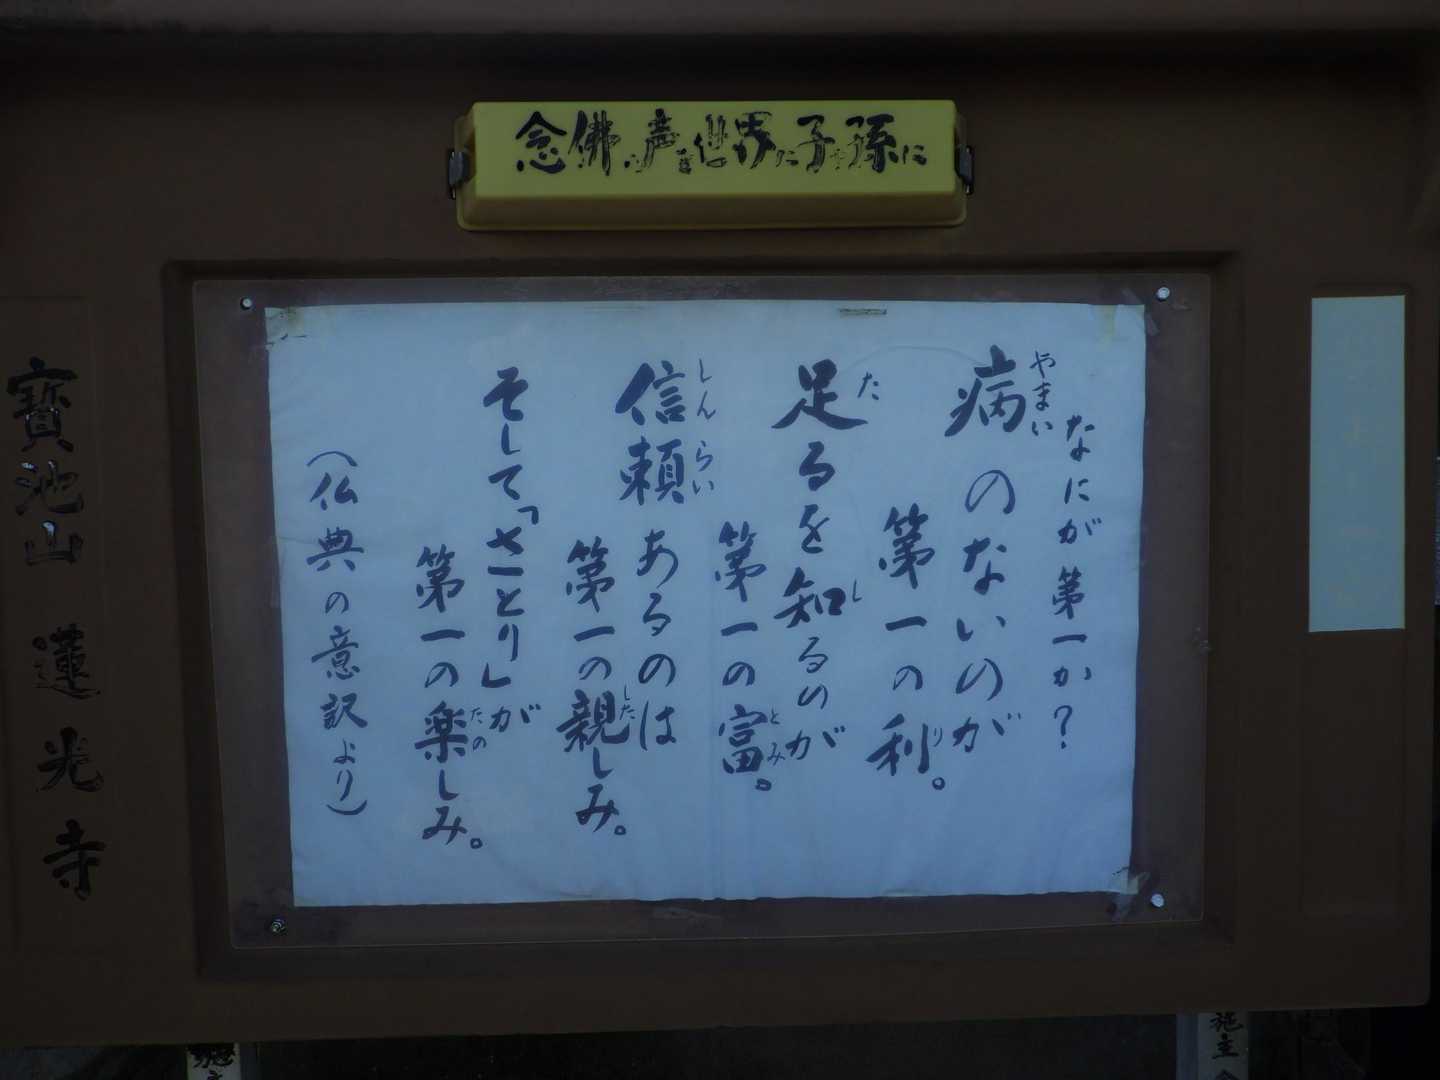 念佛の声を世界に子や孫に
なにが第一か？
病のないのが
やまい
第一の利。
り
足るを知るのが
た
し
第一の富。
とみ
信頼あるのは
しんらい
第一の親しみ。
した
そして「さとり」が
第一の楽しみ。
たの
（仏典の意訳より）
寶池山 蓮光寺
施主
施主